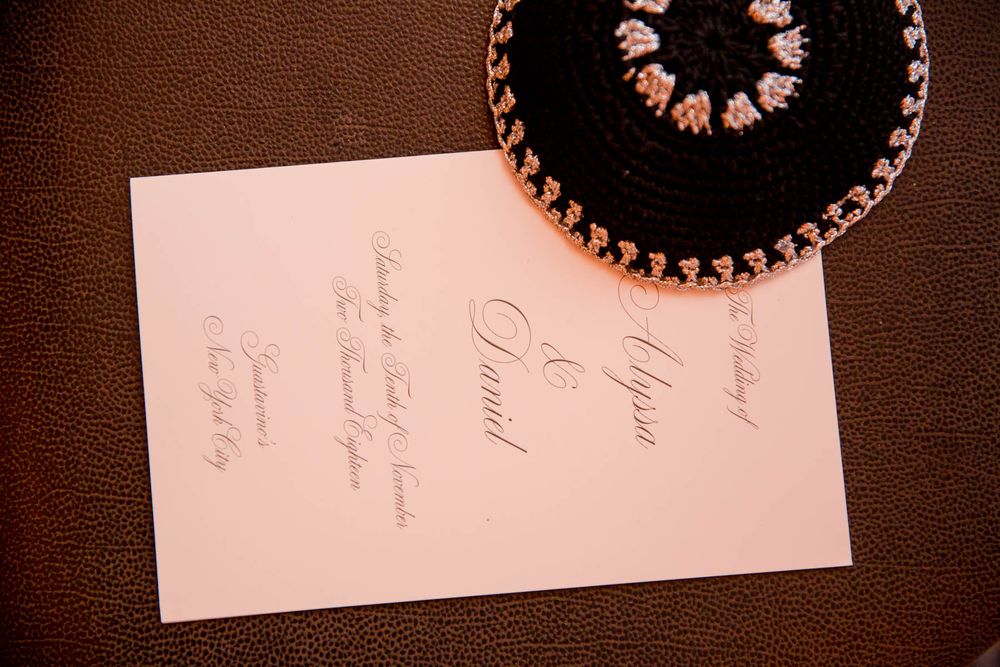 The Wedding of
Alyssa
&
Daniel
Saturday, the Tenth of November
Two Thousand Eighteen
Guastavino's
New York City